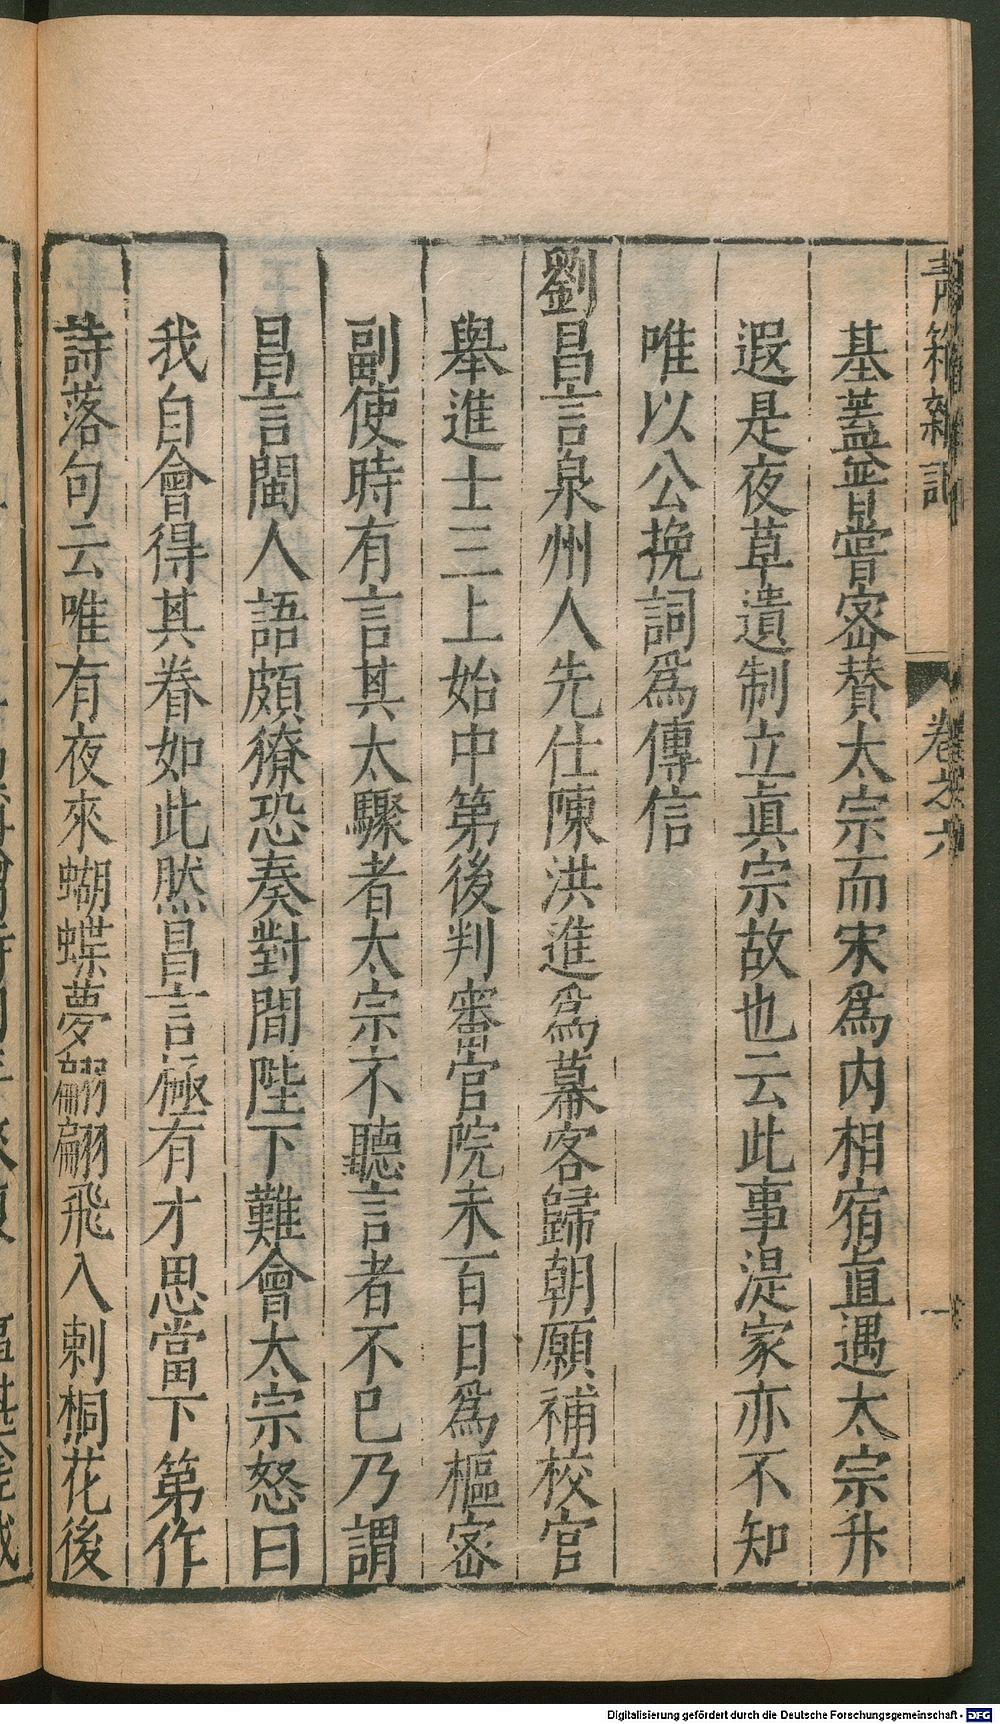 青箱雜記
卷之六
基蓋嘗密贊太宗而宋爲內相宿直遇太宗升
遐是夜草遺制立眞宗故也云此事湜家亦不知
唯以公挽詞爲傳信
劉昌言泉州人先仕陳洪進爲幕客歸朝願補校官
舉進士三上始中第後判審官院未百日爲樞密
副使時有言其太驟者太宗不聽言者不已乃謂
昌言閩人語頗獠恐奏對間陛下難會太宗怒曰
我自會得其眷如此然昌言極有才思當下第作
詩落句云唯有夜來蝴蝶夢翩翩飛入刺桐花後
Digitalisierung gefördert durch die Deutsche Forschungsgemeinschaft - DFG